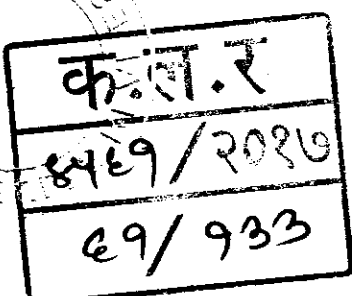 क.ल.र
४५६१/२०१७
६१/१३३